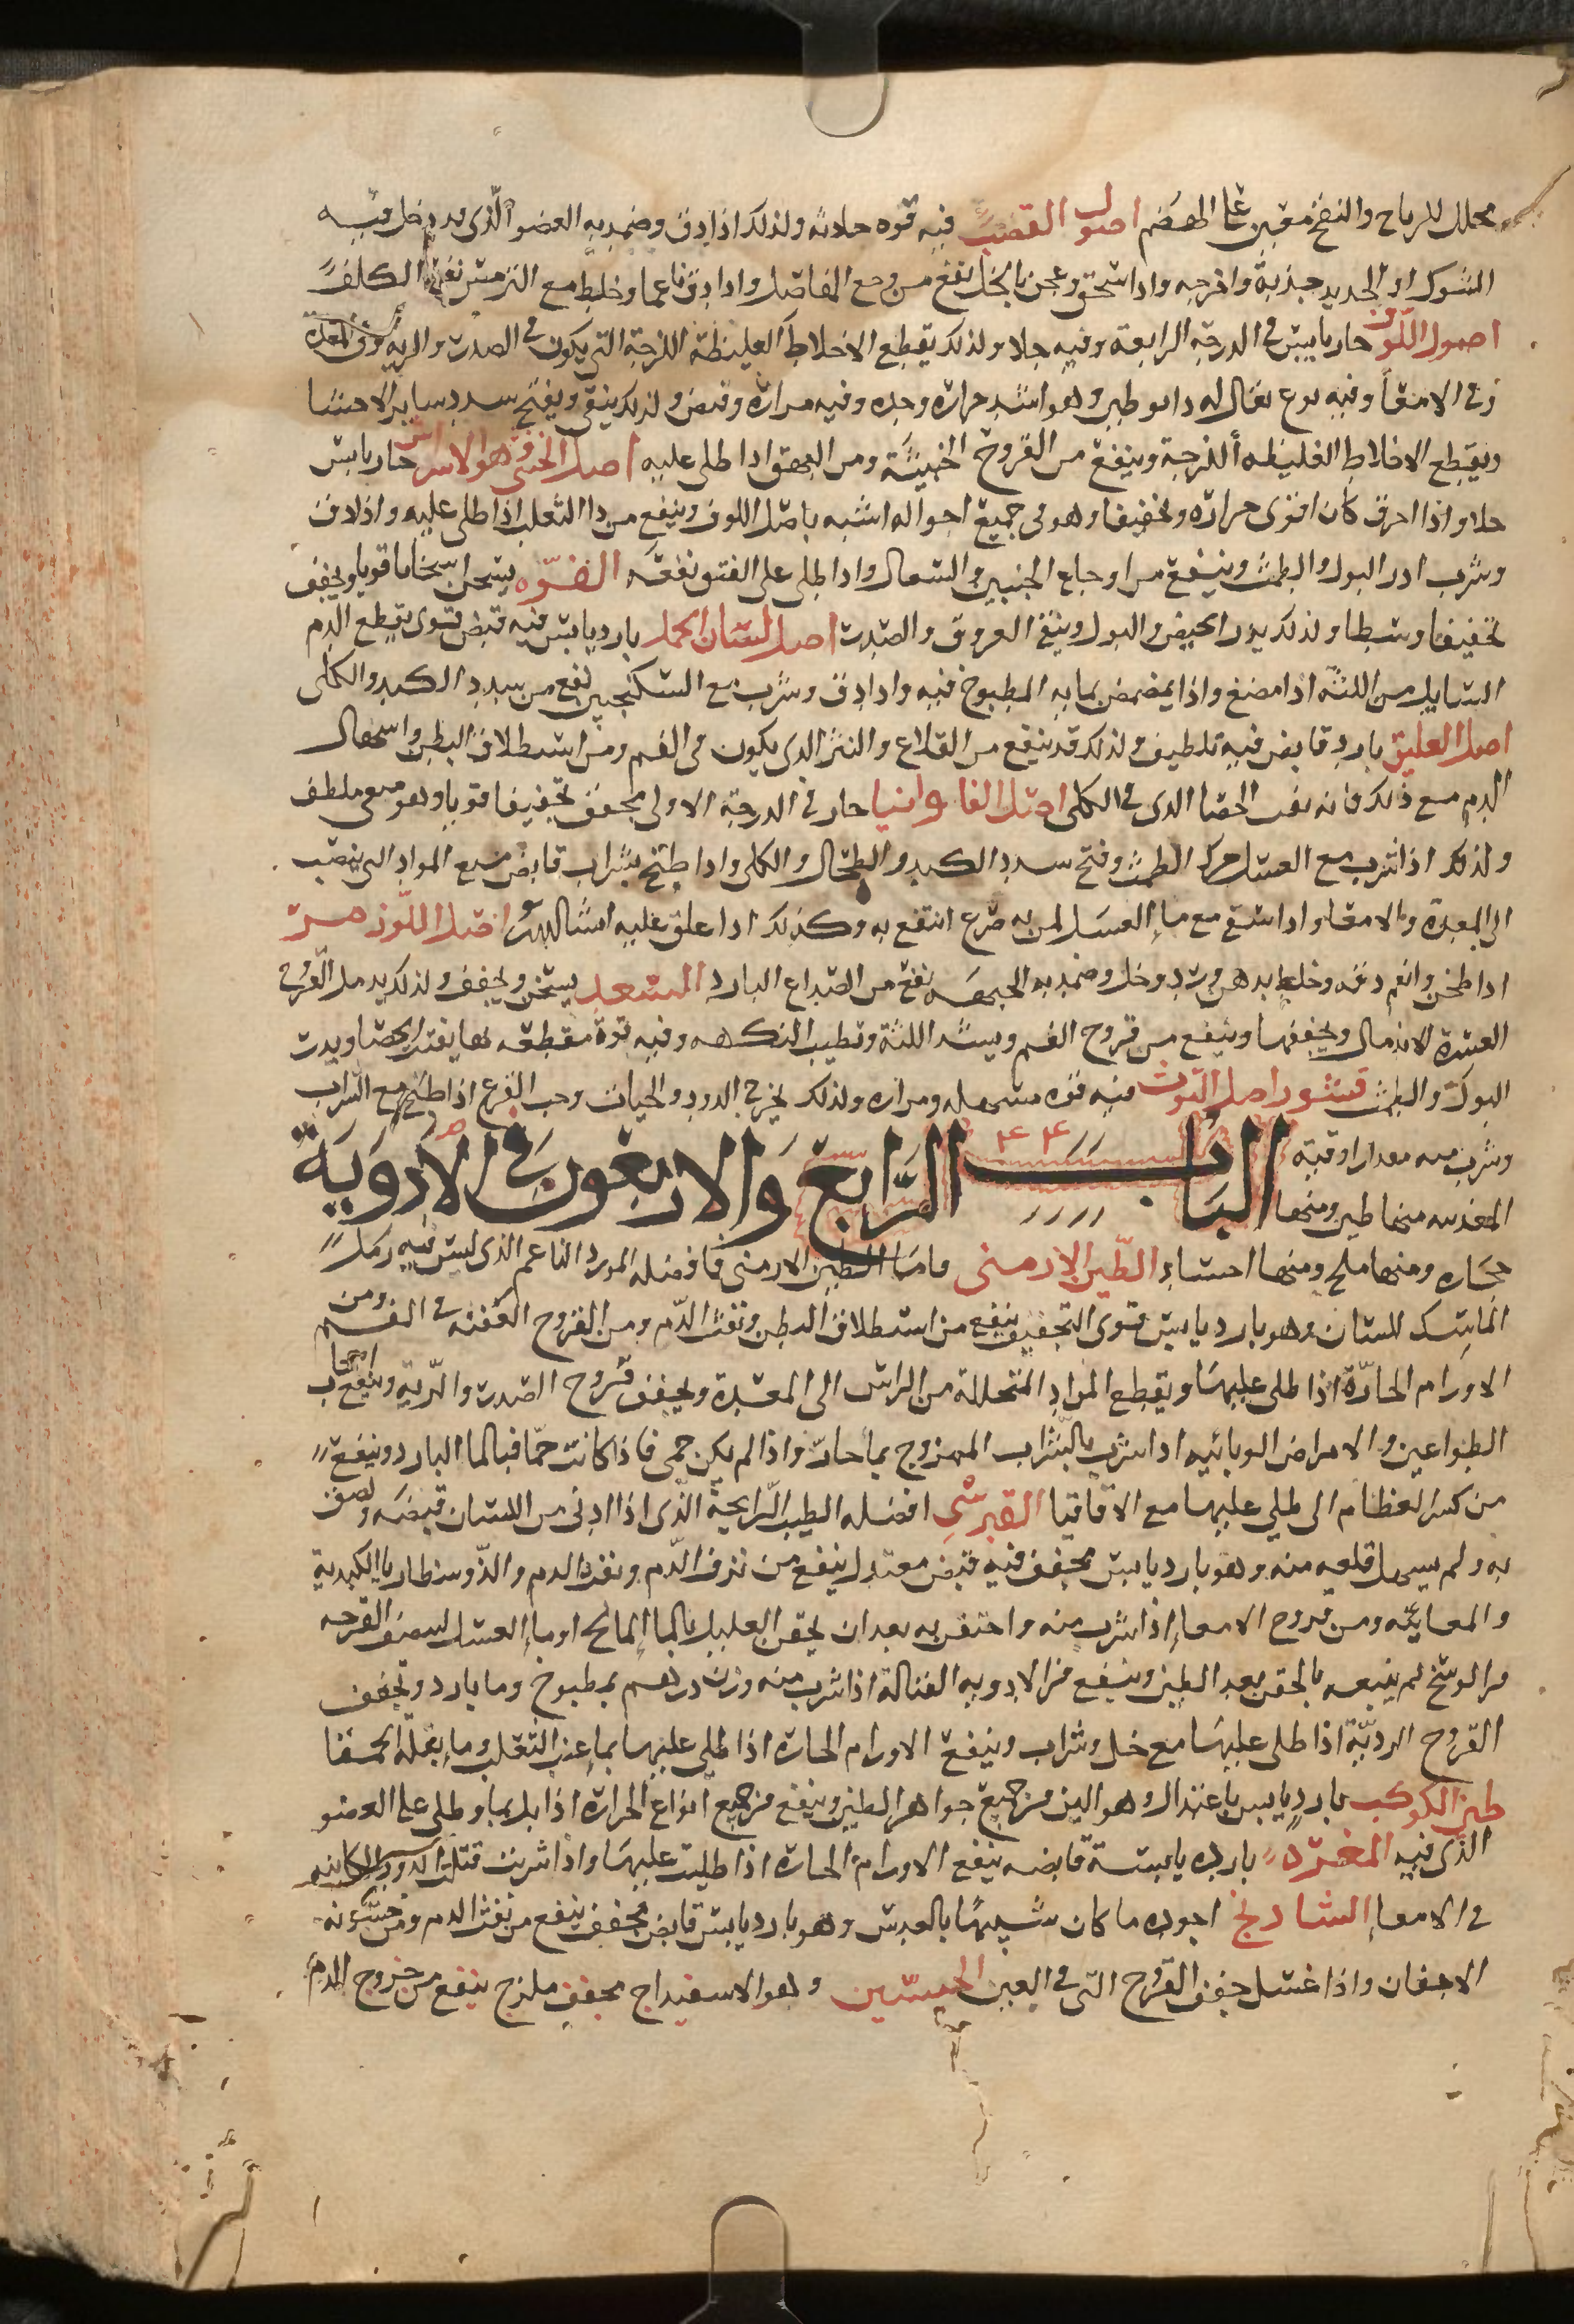 محلل للرياح والنفخ معين على الهضم اصول القصب فيه قوه جلاته ولذلك اذا دق وضمد به العضو الذي قد دخل فيه
الشوك او الحديد جذبه واخرجه واذا سحق وعجن بالخل نفع من وجع المفاصل واذا دق ناعما وخلط مع الترمس نفع الكلف
اصول اللوف حار يابس في الدرجة الرابعة وفيه جلا ولذلك يقطع الاخلاط الغليظة اللزجة التي يكون في الصدر والريه وفي المعدة
وفي الامعا وفيه نوع يقال له وهو اشد حراره وحده وفيه مرارة وقبض ولذلك ينقي ويفتح سدد ساير الاحشا
ويقطع الاخلاط الغليظه اللزجة وينفع من القروح الخبيثة ومن البهق اذا طلى عليه اصل الخنثى وهو الاسراس حار يابس
جلا واذا احرق كان اقوى حرارة وتجفيفا وهو في جميع احواله اشبه باصل اللوف وينفع من دا الثعلب اذا طلى عليه واذا دق
وشرب ادر البول والطمث وينفع من اوجاع الجنبين والسعال واذا طلى على الفتق نفعه الفوه يسخن اسخانا قويا ويجفف
تجفيفا وسطا ولذلك يدر الحيض والبول وينقي العروق والصدر اصل لسان الحمل بارد يابس فيه قبض قوى يقطع الدم
السايل من اللثة اذا مضغ واذا يمضمض بمايه المطبوخ فيه واذا دق وشرب مع السكنجبين نفع من سدد الكبد والكلى
اصل العليق بارد قابض فيه تلطيف ولذلك قد ينفع من القلاع والبثر الذي يكون في الفم ومن استطلاق البطن واسهال
الدم مع ذلك فانه يفت الحصا الذي في الكلى اصل الفاوانيا حار في الدرجة الاولى مجفف تجفيفا قويا وهو مع ملطف
ولذلك اذا شرب مع العسل حرك الطمث وفتح سدد الكبد والطحال والكلى واذا طبخ بشراب قابض منع المواد التي ينصب
الى المعدة والامعا واذا سقى مع ما العسل لمن به صرع انتفع به وكذلك اذا علق عليه اصل اللوز مر
اذا طحن وانعم دقه وخلط بدهن ورد وخل وضمد به الجبهه نفع من الصداع البارد السعد يسخن ويجفف ولذلك يدمل القروح
العسرة الاندمال ويجففها وينفع من قروح الفم ويشد اللثة ويطيب النكهه وفيه قوة مقطعه لها يفتت الحصا ويدر
البول والطمث قشور اصل التوث فيه قوه مسهله ومراره ولذلك يخرج الدود والحيات وحب القرع اذا طبخ مع الشراب
وشرب منه مقدار اوقيه الباب الرابع والاربعون في الادوية
٤٤
المعدنيه منها طين ومنها
حجاره ومنها ملح ومنها احساد الطين الارمنى فاما الطين الارمني فافضله المورد الناعم الذي ليس فيه رمل
الماسك للسان وهو بارد يابس قوى التجفيف ينفع من استطلاق البطن ونفث الدم ومن القروح العفنه في الفم ومن
الاورام الحارة اذا طلى عليها ويقطع المواد المتحللة من الراس الى المعدة ويجفف قروح الصدر والرية وينفع اصحاب
الطواعين والامراض الوبائيه اذا شرب بالشراب الممزوج بما حار واذا لم يكن حمى فاذا كانت حما فبالما البارد وينفع
من كسر العظام اذا طلي عليها مع الاقاقيا القبرسي افضله الطيب الرايحة الذى اذا ادنى من اللسان قبضه ولصق
به ولم يسهل قلعه منه وهو بارد يابس مجفف فيه قبض معتدل ينفع من نزف الدم ونفث الدم والدوسنطاريا الكبدية
والمعائيه ومن قروح الامعا اذا شرب منه واحتقن به بعد ان يحقن العليل بالما المالح او ما العسل القرحه
من الوسخ ثم يتبعه بالحقن بعد الطين وينفع من الادويه القتالة اذا شرب منه وزن درهم بمطبوخ وما بارد ويجفف
القروح الردية اذا طلى عليها مع خل وشراب وينفع الاورام الحارة اذا طلى عليها بما عنب الثعلب وما بقله الحمقا
طين الكوكب بارد يابس باعتدال وهو الين من جميع جواهر الطين وينفع من جميع انواع الحرارة اذا بل بما وطلى على العضو
الذى فيه المغرة بارده يابسة قابضه ينفع الاورام الحارة اذا طليت عليها واذا شربت قتلت الدود الكاينه
في الامعا الشادنج اجوده ما كان شبيها بالعدس وهو بارد يابس قابض مجفف ينفع من نفث الدم ومن خشونه
الاجفان واذا غسل جفف القروح التي في العين الجبسين وهو الاسفيداج مجفف ملزج ينفع من خروج الدم